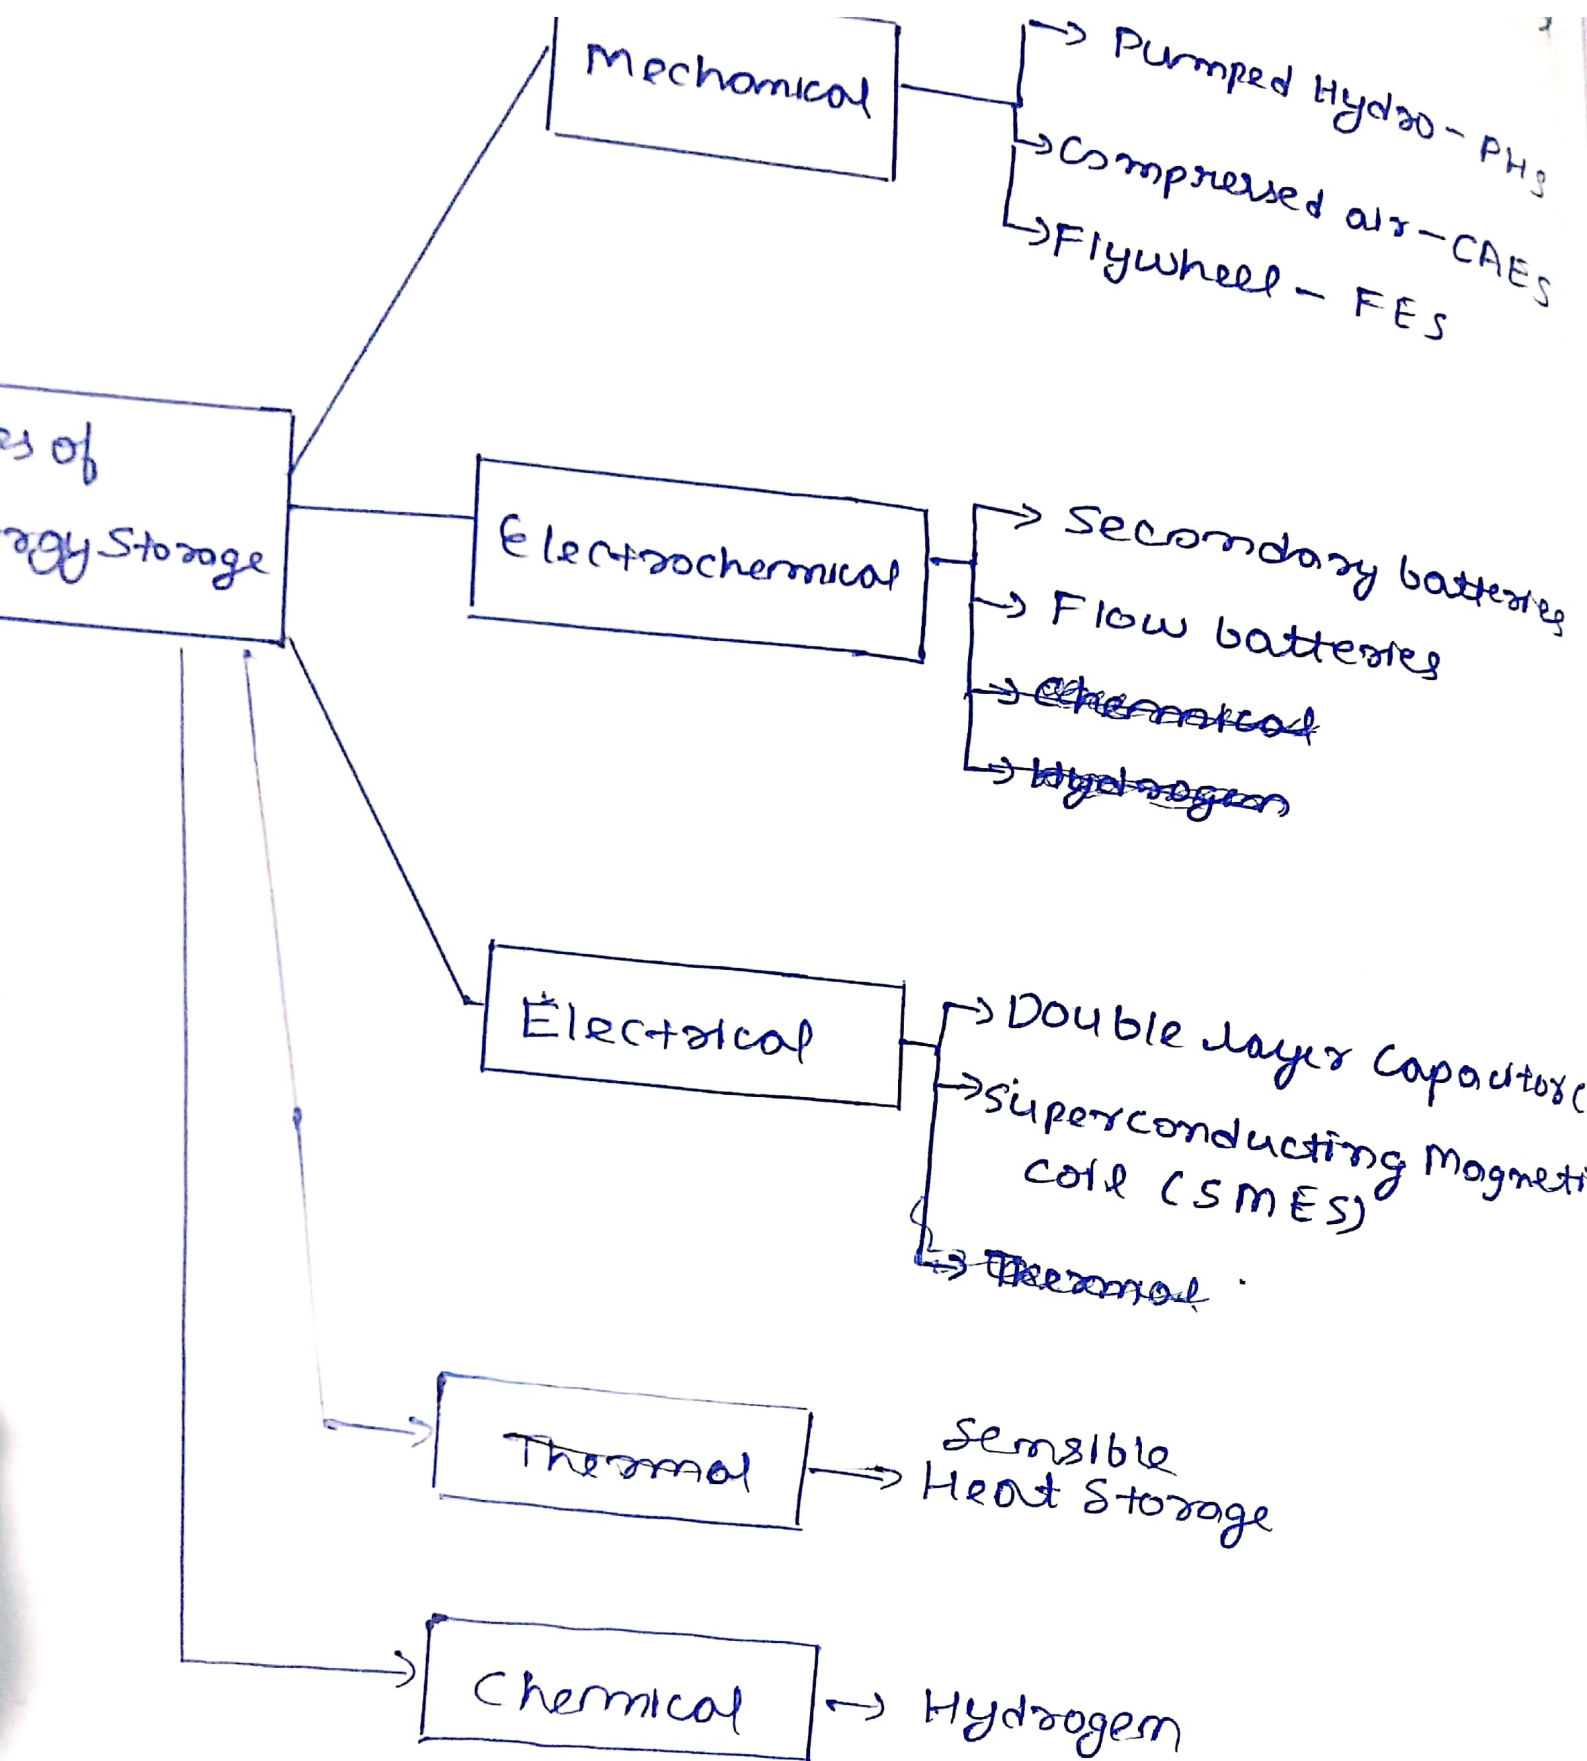 Mechanical
Pumped Hydro - PHS
Compressed air - CAES
Flywheel - FES
es of
rgy Storage
Electrochemical
Secondary batteries
Flow batteries
Chemical
Hydrogen
Electrical
Double layer Capacitor (
Superconducting Magneti
Coil (SMES)
Thermal
Thermal
Sensible
Heat Storage
Chemical
Hydrogen